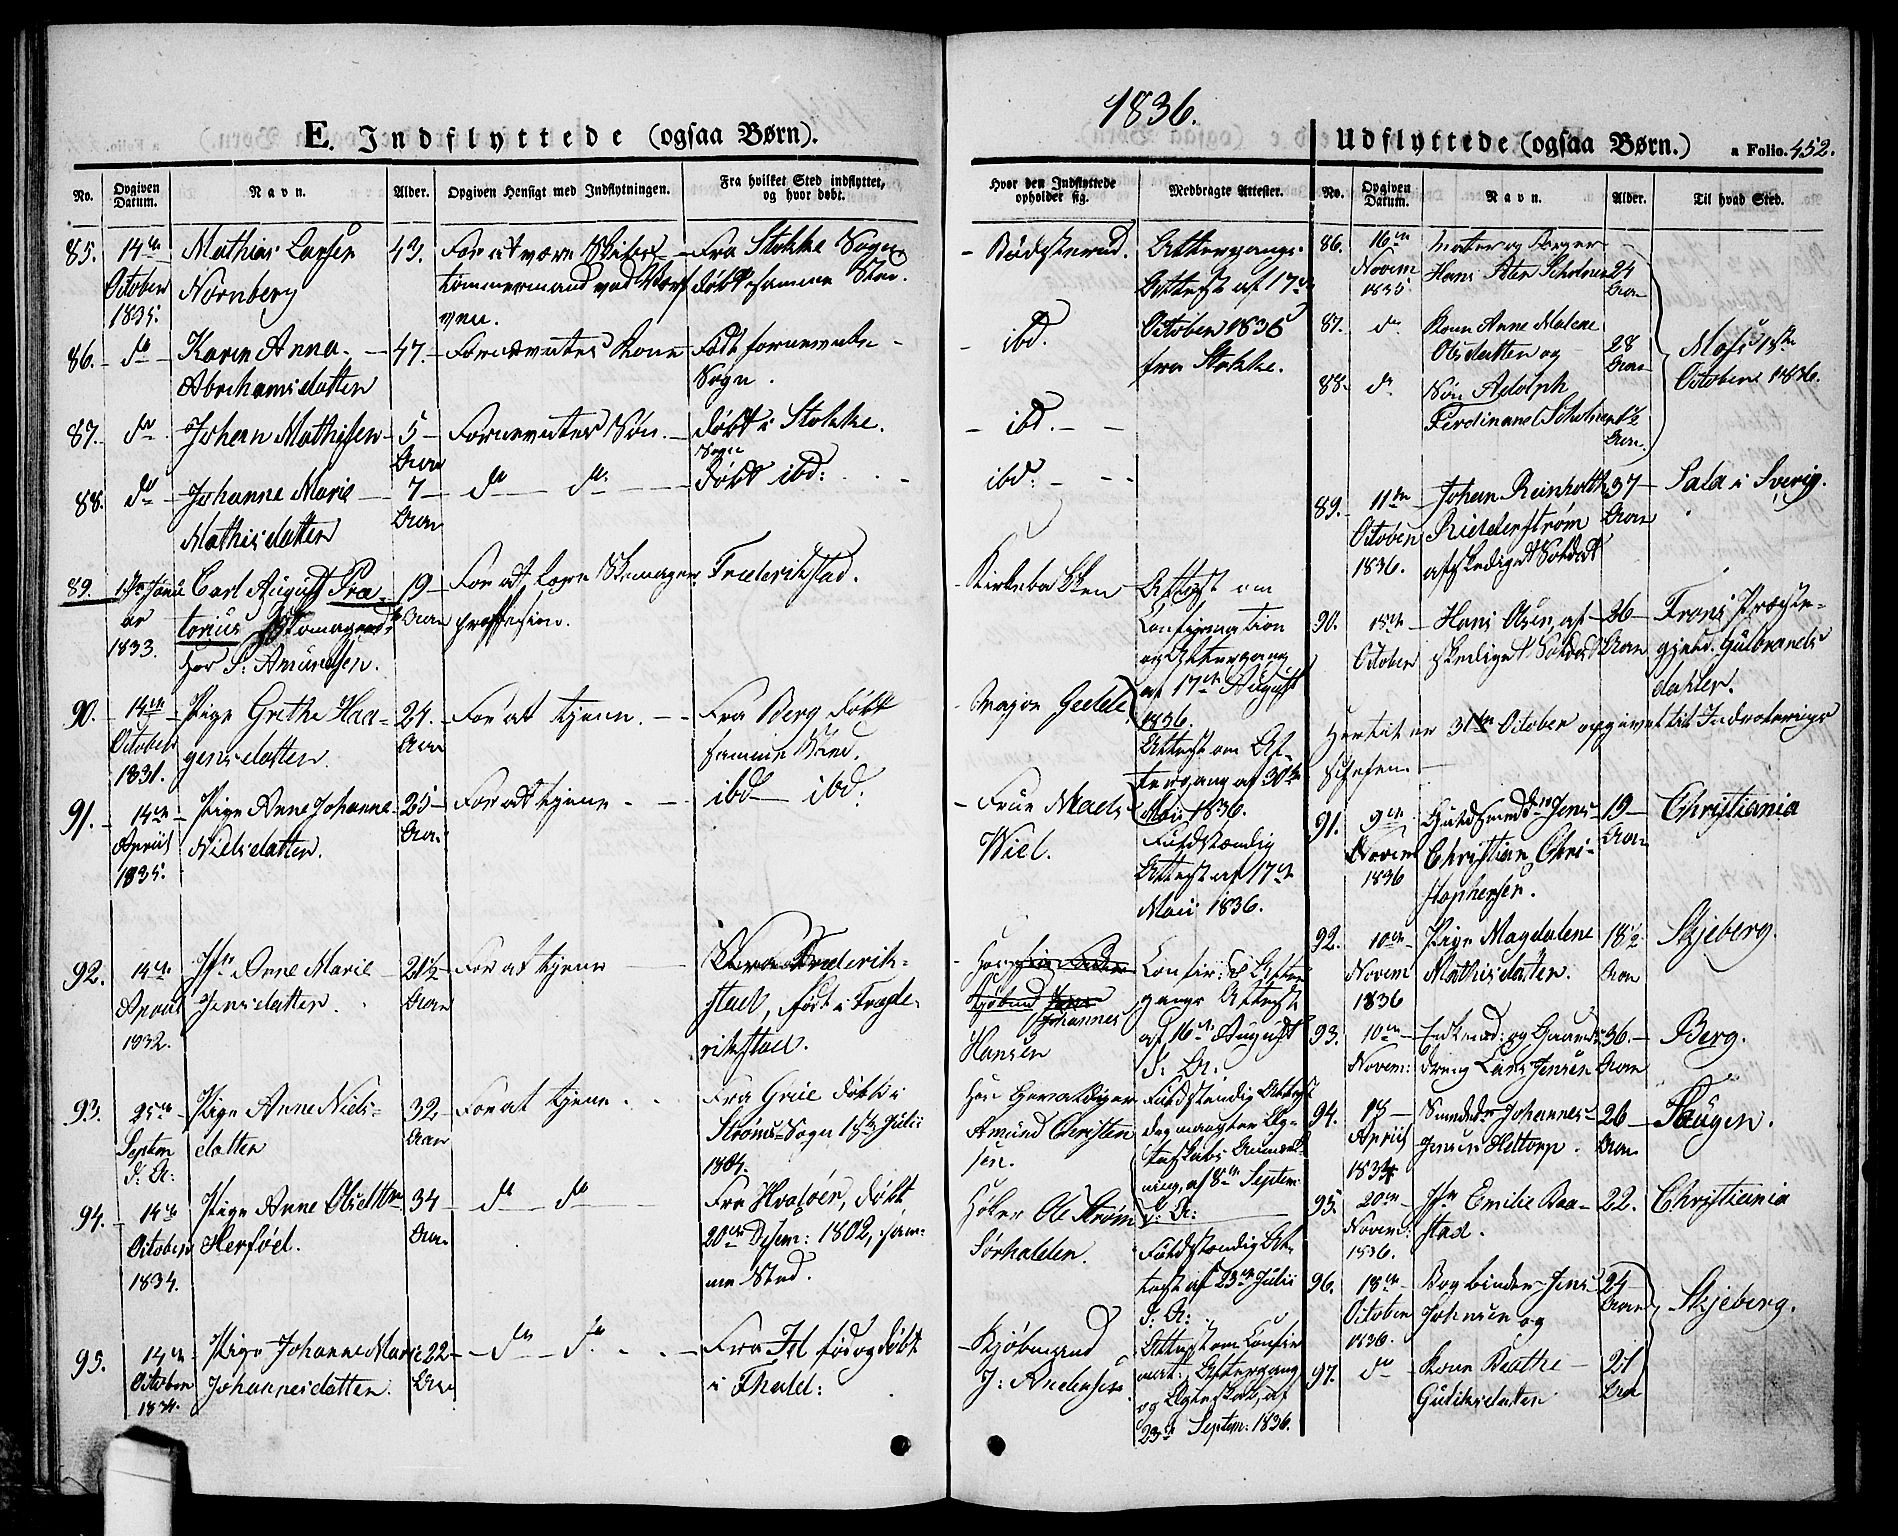 1836.
E. Indflyttede (ogsaa Børn).
Udflyttede (ogsaa Børn.) a Folio. 452.
No. Opgiven Datum. Navn. Alder. Opgiven Hensigt med Indflytningen. Fra hvilket Sted indflyttet, og hvor døbt. Hvor den Indflyttede opholder sig. Medbragte Attester.
85. 14de October 1835. Mathias Larsen Nornberg 43. For at være Skibstømmermand ved Værfven. Fra Stokke Sogn døbt samme Sted. Rødsterud. Attergangs-Attest af 17de October 1836 fra Stokke.
86. do Karen Anna Abrahamsdatter 47. Fornævntes Kone Født fornævnte Sogn. ibd.
87. do Johan Mathisen 5 Aar Fornævntes Søn. døbt i Stokke Sogn ibd.
88. do Johanne Marie Mathisdatter 7 Aar do do døbt ibd: ibd.
89. Januar 1833. Carl August Prætorius hos S: Amundsen. 19 Aar For at lære Skomager profession. Friderikstad. Kirkebakken Attest om Confirmation og Altergang af 17de August 1836.
90. 14de October 1831. Pige Grethe Haagensdatter. 24. Aar For at tjene. Fra Berg døbt samme Sted. Major Gedde Attest om Altergang af 30te Mai 1836.
91. 14de April 1835. Pige Anne Johanne Nielsdatter. 25 Aar For at tjene ibd ibd. Frue Mads Wiel. Fuldstændig Attest af 17de Mai 1836.
92. 14de April 1832. Anne Marie Jensdatter 21½ Aar For at tjene Fra Friderikstad, født i Friderikstad. Johannes Hansen Confir: & Altergangs Attest af 16de August d: A:
93. 25de Septem d: A: Pige Anne Nielsdatter 32 Aar For at tjene Fra Grue døbt i Strøms-Sogn 18de Juli 1804. Amund Christensen. Fuldstændig Attest af 8de Septem: d: A:
94. 14de October 1834. Pige Anne Olsdatter Herføel. 34 Aar do do Fra Hvaløer, døbt 20de Desem: 1802, samme Sted. Høker Ole Strøm Sørhalden. Fuldstændig Attest af 23de Juli d: A:
95. 14de October 1834. Pige Johanne Marie Johannesdatter. 22 Aar do do Fra Id fød og døbt i Fhald: Kjøbmand J: Andersen. Attest om Confirmat: Altergang og Ægteskab, af 23de Septem: 1836.
No. Opgiven Datum. Navn. Alder. Til hvad Sted.
86. 16de Novem 1835. Hans Peter Scholner 24 Aar
87. do Kone Anne Malene Olsdatter og 28 Aar Moss 13de October 1836.
88. do Søn Adolph Ferdinand Scholner 1½ Aar.
89. 11te October 1836. Johan Reinholt Ridderstrøm afskediget Soldat 37 Aar Sala i Sverig.
90. 15de October Hans Olsen, afskediget Soldat 36 Aar Frons Præstegjeld. Gulbrandsdahlen.
Hertil er 31te October opgivet til Indroteringschefen.
91. 9de Novem 1836 Guldsmedsv. Jens Christian Christophersen. 19 Aar Christiania
92. 10de Novem 1836 Pige Magdalene Mathisdatter. 18½ Aar Skjeberg.
93. 10de Novem: Enkemd: og Gaardsdreng Lars Jensen 36. Aar Berg.
94. 18 April 1834 Johannes Jensen Hettorp. 26 Aar Taugen.
95. 20de Novem: 1836. Emilie Baastad. 22. Christiania
96. 18de October 1836. Bogbinder Jens Johnsen og 24 Aar Skjeberg.
97. do Kone Beathe Gudiksdatter 21 Aar